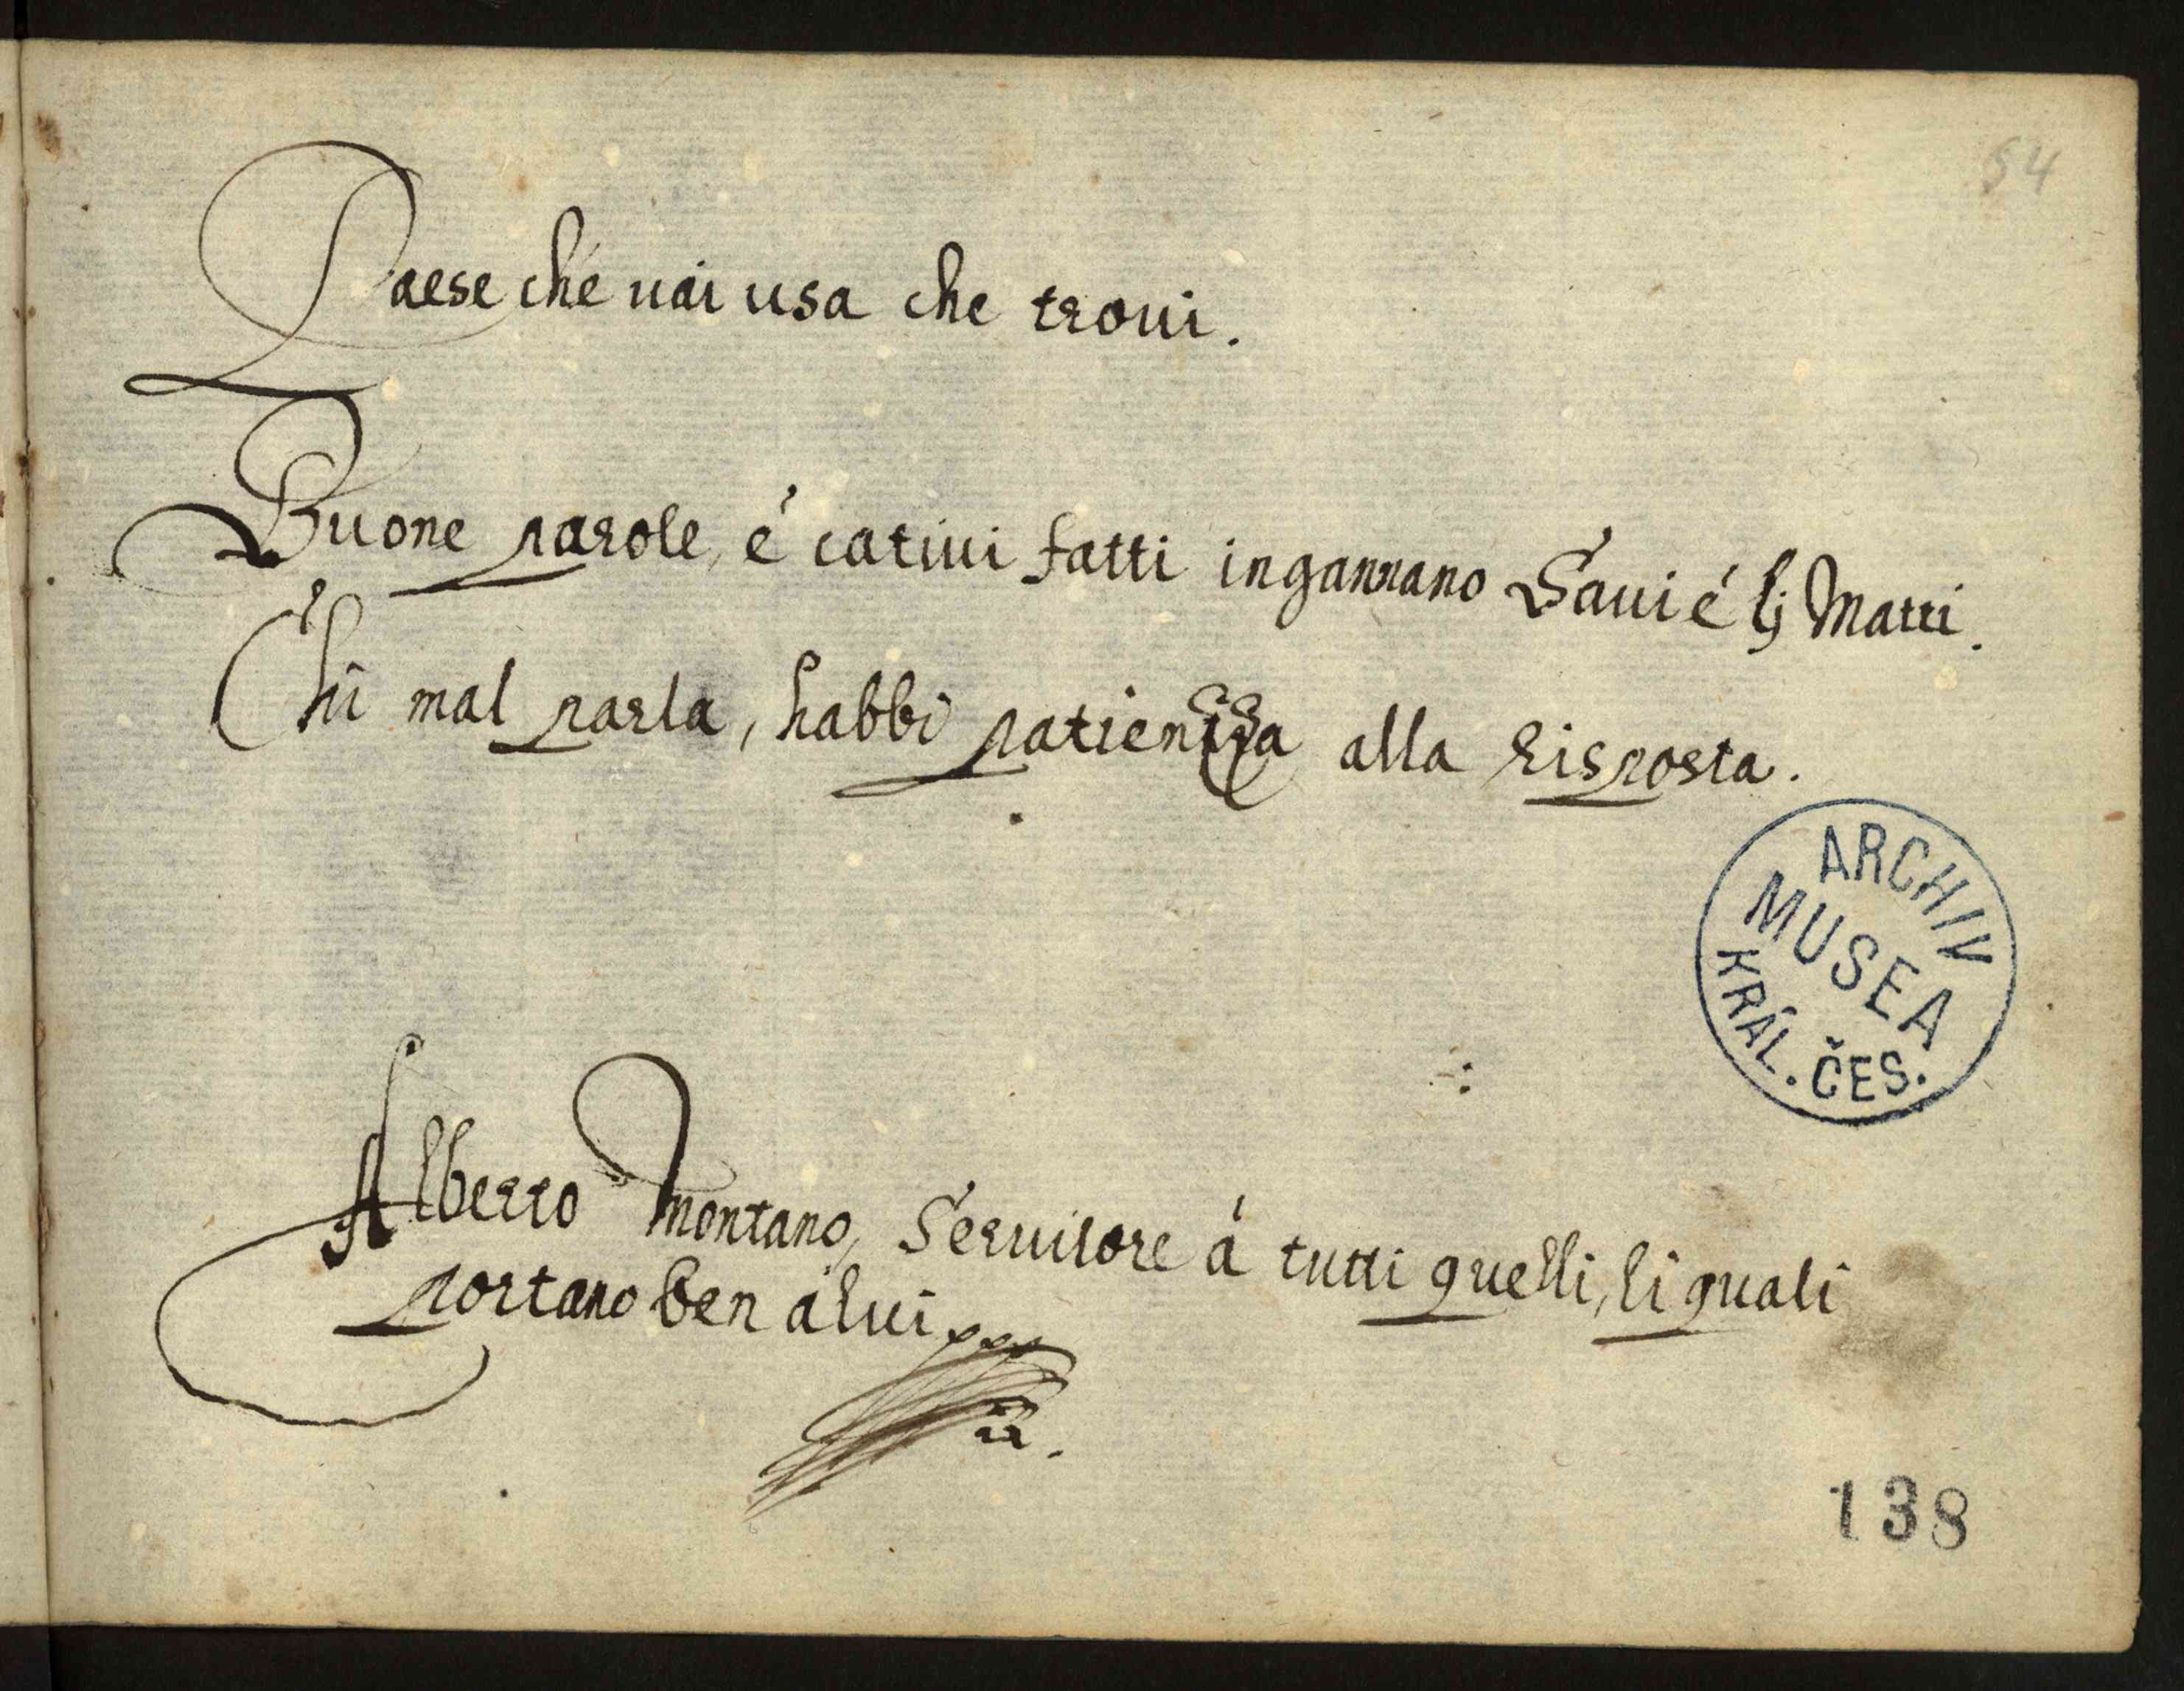 54
Paese ché uai usa che troui.
Buone parole, é catiui fatti ingannano Saui é lj Matti.
Chi mal parla, habbi patienzza alla risposta.
ARCHIV
MUSEA
KRÁL. ČES.
Alberto Montano, Seruitore á tutti quelli, li quali
portano ben á lui
138